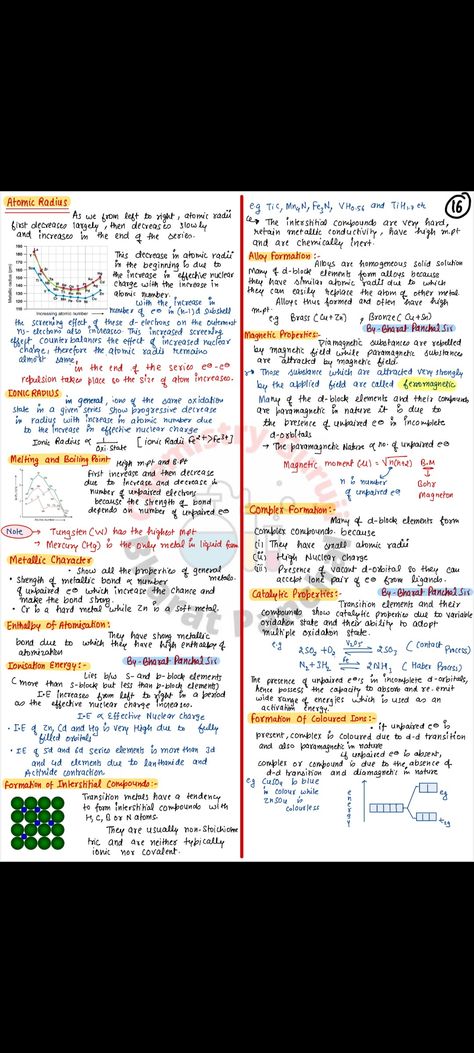 Atomic Radius
As we from left to right, atomic radii
first decreases largely, then decreases slowly
and increases in the end of the series.
This decrease in atomic radii
in the beginning is due to
the increase in effective nuclear
charge with the increase in
atomic number.
Increasing atomic number
with the increase in
number of e⊖ in (n-1) d subshell
the screening effect of these d-electrons on the outermost
ns-electrons also increases. This increased screening
effect counter balances the effect of increased nuclear
charge, therefore the atomic radii remains
almost same,
in the end of the series e⊖-e⊖
repulsion takes place so the size of atom increases.
IONIC RADIUS
in general, ions of the same oxidation
state in a given series show progressive decrease
in radius with increase in atomic number due
to the increase in effective nuclear charge
Ionic Radius ∝ 1/Oxi State [ionic Radii Fe²⁺>Fe³⁺]
Melting and Boiling Point
High m.pt and B.Pt
First increase and then decrease
due to increase and decrease in
number of unpaired electrons
because the strength of bond
depends on number of unpaired e⊖
Note → Tungsten (W) has the highest mpt
→ Mercury (Hg) is the only metal in liquid form
Metallic Character
• Show all the properties of general
metals.
• Strength of metallic bond ∝ number
of unpaired e⊖ which increase the chance and
make the bond strong.
• Cr is a hard metal while Zn is a soft metal.
Enthalpy of Atomisation:
They have strong metallic
bond due to which they have high enthalpy of
atomization
By-Bharat Panchal Sir
Ionisation Energy:-
Lies b/w S- and p-block elements
(more than S-block but less than p-block elements)
I.E increases from left to right in a period
as the effective nuclear charge increases.
I.E ∝ Effective Nuclear Charge
• I.E of Zn, Cd and Hg is very High due to fully
filled orbitals
• IE of 5d and 6d series elements is more than 3d
and 4d elements due to lanthanoid and
Actinide contraction.
Formation of Interstitial Compounds:-
Transition metals have a tendency
to form interstitial compounds with
H, C, B or N atoms.
They are usually non-stoichiome
tric and are neither typically
ionic nor covalent.
16
eg TiC, Mn4N, Fe3N, VH0.56 and TiH1.7 etc
→ The interstitial compounds are very hard,
retain metallic conductivity, have high m.pt
and are chemically inert.
Alloy Formation:-
Alloys are homogeneous solid solution
Many of d-block elements form alloys because
they have similar atomic radii due to which
they can easily replace the atom of other metal.
Alloys thus formed and often have high
m.pt.
e.g Brass (Cu+Zn), Bronze (Cu+Sn)
By-Bharat Panchal Sir
Magnetic Properties:-
Diamagnetic substances are repelled
by magnetic field while paramagnetic substances
are attracted by magnetic field.
• Those substance which are attracted very strongly
by the applied field are called ferromagnetic
Many of the d-block elements and their compounds
are paramagnetic in nature it is due to
the presence of unpaired e⊖ in incomplete
d-orbitals
→ The paramagnetic Nature ∝ no. of unpaired e⊖
Magnetic moment (μ) = √n(n+2) B.M
n is number
of unpaired e⊖
Bohr
Magneton
Complex Formation:-
Many of d-block elements form
complex compounds because
(i) They have small atomic radii
(ii) High Nuclear charge
(iii) Presence of vacant d-orbital so they can
accept lone pair of e⊖ from ligands.
Catalytic Properties:-
Transition elements and their
compounds show catalytic properties due to variable
oxidation state and their ability to adopt
multiple oxidation state.
e.g 2SO2 + O2 ⇌ 2SO3 (Contact Process)
V2O5
N2 + 3H2 ⇌ 2NH3 (Haber Process)
Fe
The presence of unpaired e⊖'s in incomplete d-orbitals,
hence possess the capacity to absorb and re-emit
wide range of energies which is used as an
activation energy.
Formation Of Coloured Ions:-
• if unpaired e⊖ is
present, complex is coloured due to d-d transition
and also paramagnetic in nature
if unpaired e⊖ is absent,
complex or compound is due to the absence of
d-d transition and diamagnetic in nature
eg CuSO4 is blue
in colour while
ZnSO4 is
colourless
energy
eg
t2g